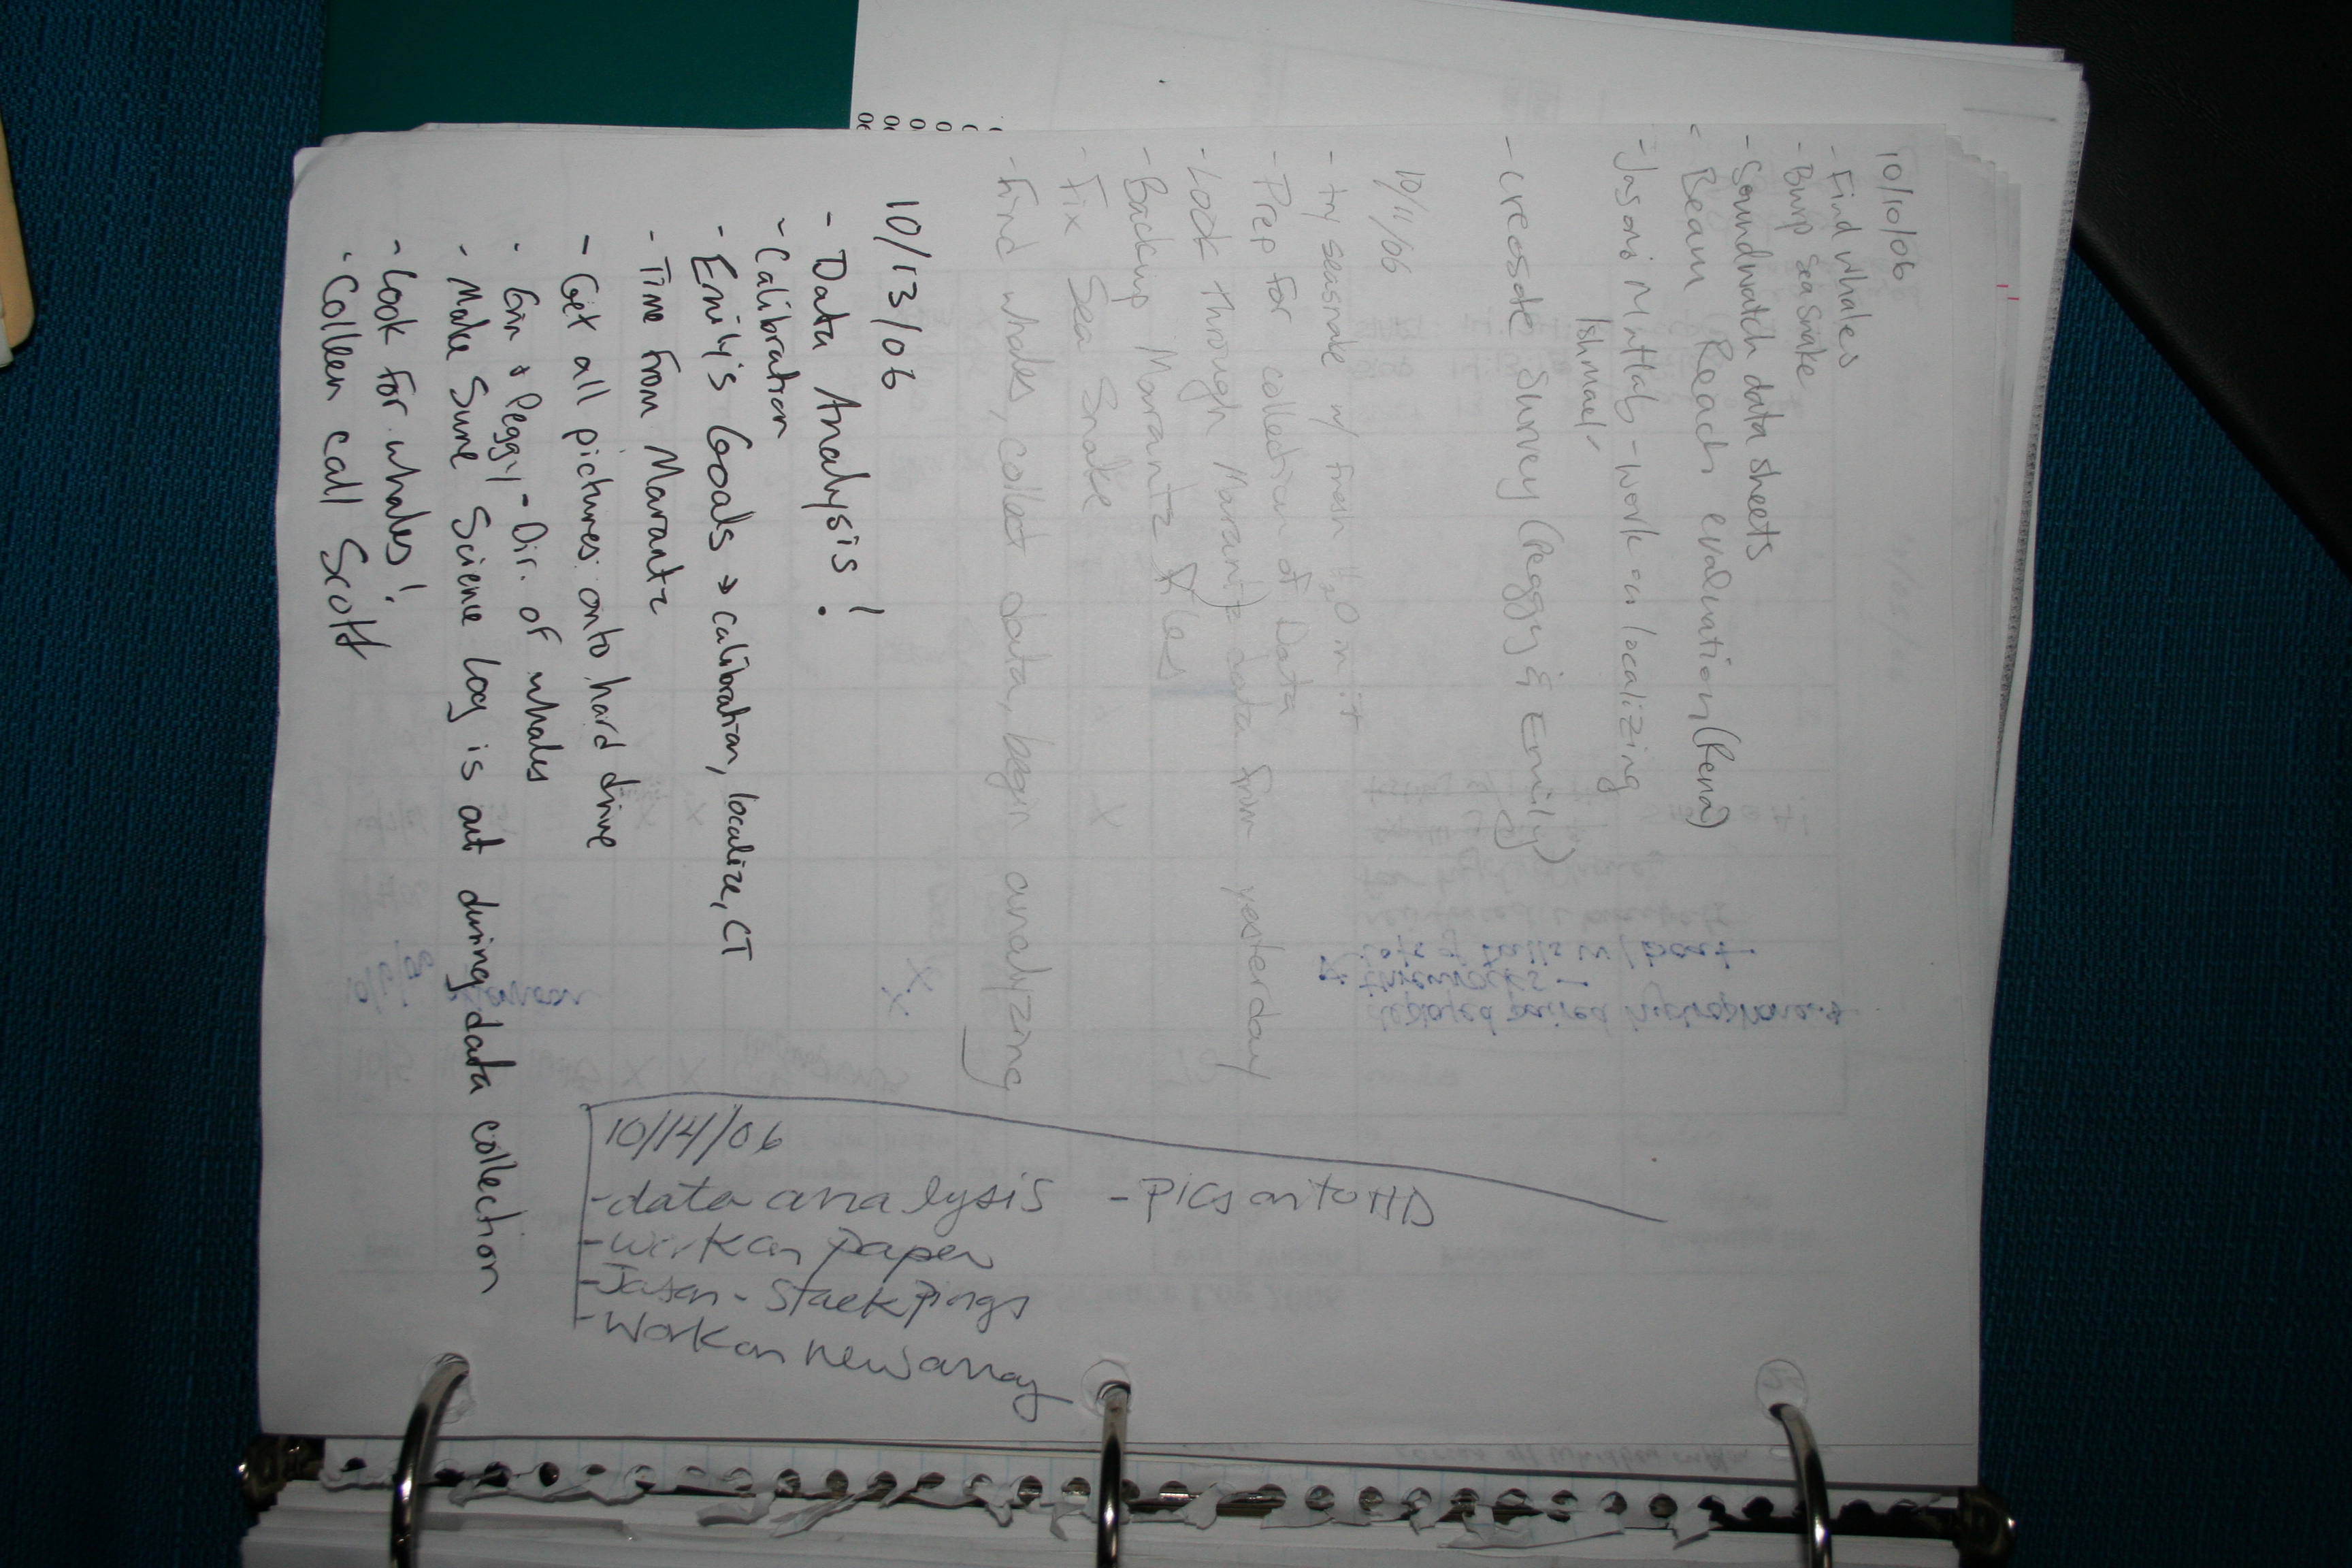 10/10/06
- Find whales
- Burp Sea Snake
- Soundwatch data sheets
- Beam Reach evaluation (Rena)
- Jason: Mattab - work on localizing
Ishmael
- creosote Survey (Peggy & Emily)
10/11/06
- try seasnake w/ fresh H2O in it
- Prep for collection of Data
- Look through Marantz data from yesterday
- Backup Marantz files
- Fix Sea Snake
- Find whales, collect data, begin analyzing
10/13/06
- Data Analysis!
- Calibration
- Emily's Goals → calibration, localize, CT
- Time from Marantz
- Get all pictures onto hard drive
- Erin & Peggy - Dir. of whales
- Make Sure Science Log is out during data collection
- Look for whales!
- Colleen call Scott
10/14/06
- data analysis - Pics onto HD
- Work on paper
- Jason - Stack Pings
- Work on new array